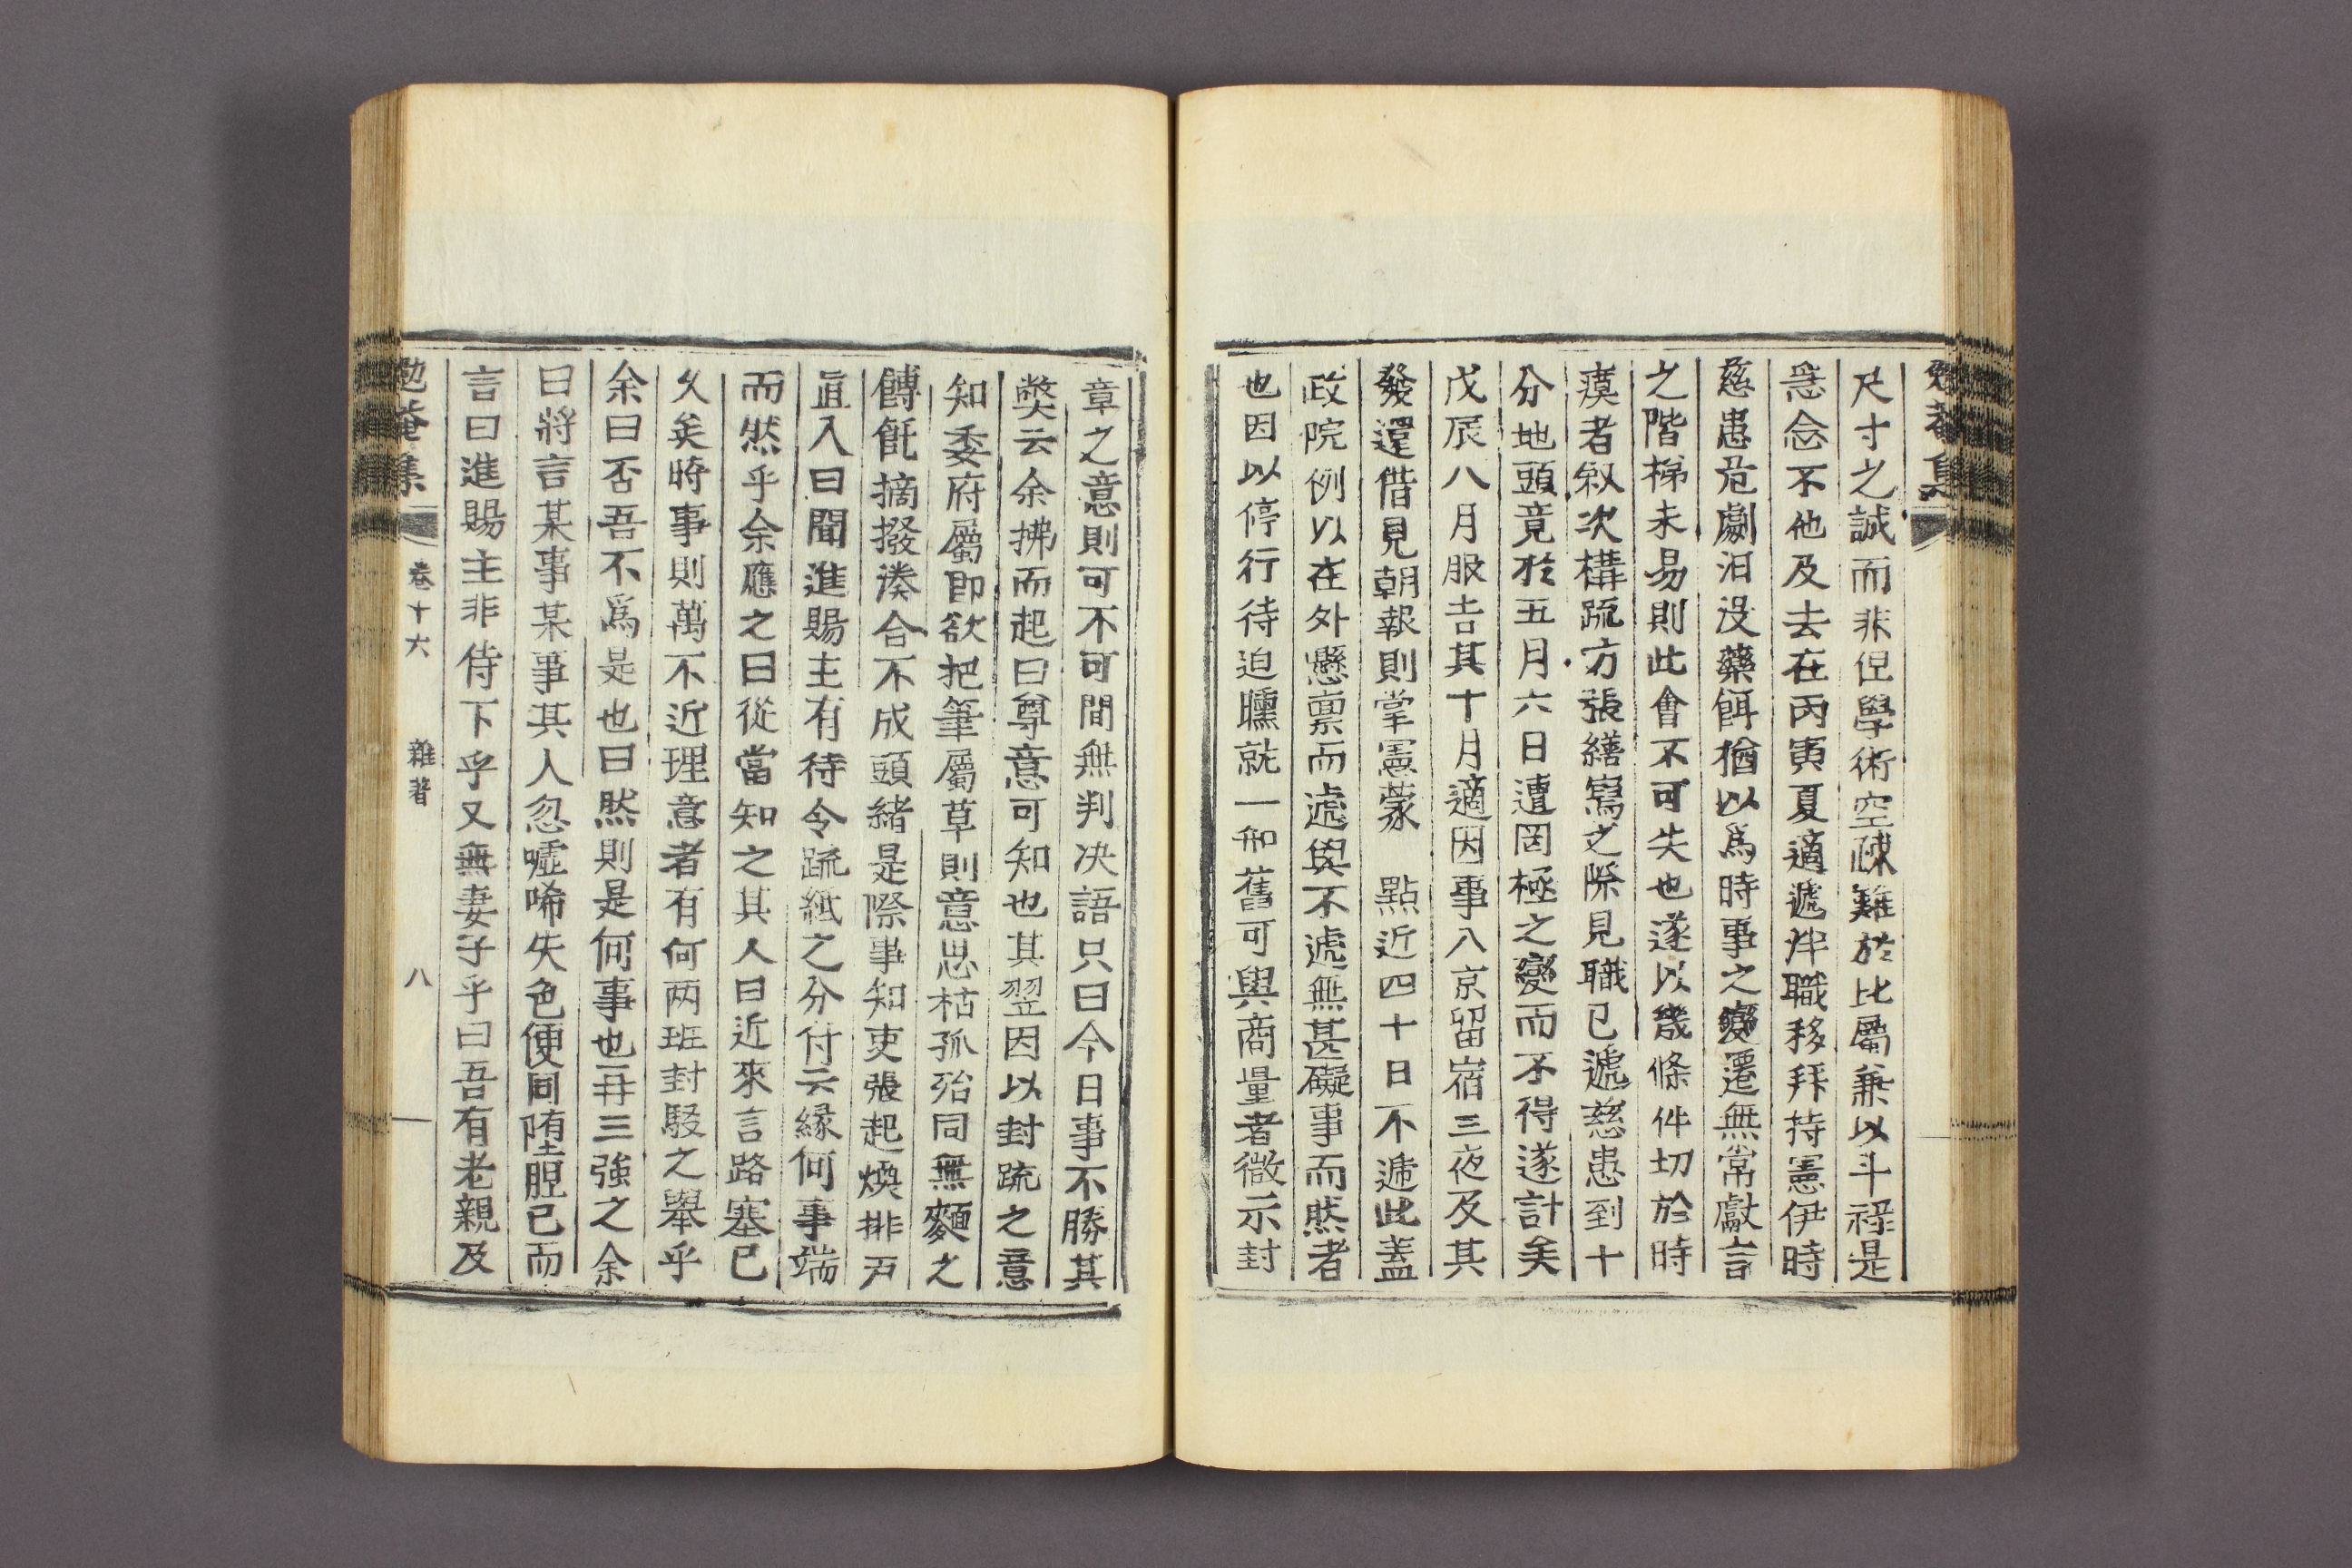 勉菴集
尺寸之誠而非但學術空疎難於比屬兼以斗祿是
急念不他及去在丙寅夏適遞泮職移拜持憲伊時
慈患危劇汨沒藥餌猶以爲時事之變遷無常獻言
之階梯未易則此會不可失也遂以幾條件切於時
瘼者叙次構疏方張繕寫之際見職已遞慈患到十
分地頭竟於五月六日遭罔極之變而不得遂計矣
戊辰八月服吉其十月適因事入京留宿三夜及其
發還借見朝報則掌憲蒙 點近四十日不遞此盖
政院例以在外懸禀而遞與不遞無甚礙事而然者
也因以停行待迫曛就一知舊可與商量者微示封
章之意則可不可間無判决語只曰今日事不勝其
獘云余拂而起曰尊意可知也其翌因以封疏之意
知委府屬即欲把筆屬草則意思枯孤殆同無麵之
餺飥摘撥湊合不成頭緖是際事知吏張起煥排戶
直入曰聞進賜主有待令疏紙之分付云緣何事端
而然乎余應之曰從當知之其人曰近來言路塞已
久矣時事則萬不近理意者有何两班封駁之舉乎
余曰否吾不爲是也曰然則是何事也再三強之余
曰將言某事某事其人忽噓唏失色便同墮膽已而
言曰進賜主非侍下乎又無妻子乎曰吾有老親及
勉菴集 卷十六 雜著 八